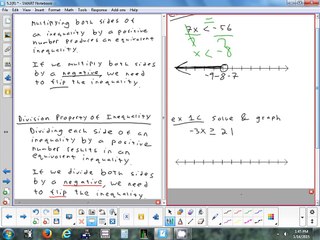 5.2(R)* - SMART Notebook
Multiplying both sides of
an inequality by a positive
number produces an equivalent
inequality.
If we multiply both sides
by a negative, we need
to flip the inequality
Division Property of Inequality
Dividing each side of an
inequality by a positive
number results in an
equivalent inequality.
If we divide both sides
by a negative, we need
to flip the inequality
7x < -56
x < -8
-9 -8 -7
ex 1c Solve & graph
-3x ≥ 21
1:47 PM